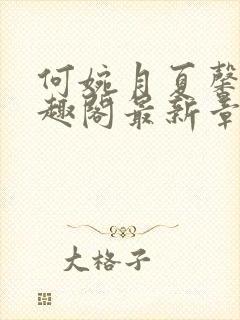 何婉月夏馨
趣阁最新章
大格子